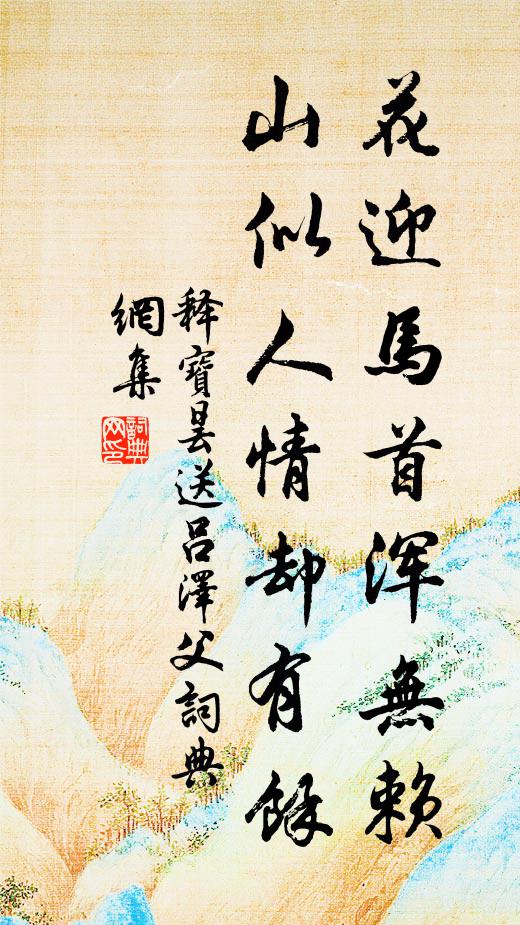 花迎馬首浑無賴
山似人情却有餘
釋寶昙送吕澤父詞典
網集
詞典
网印